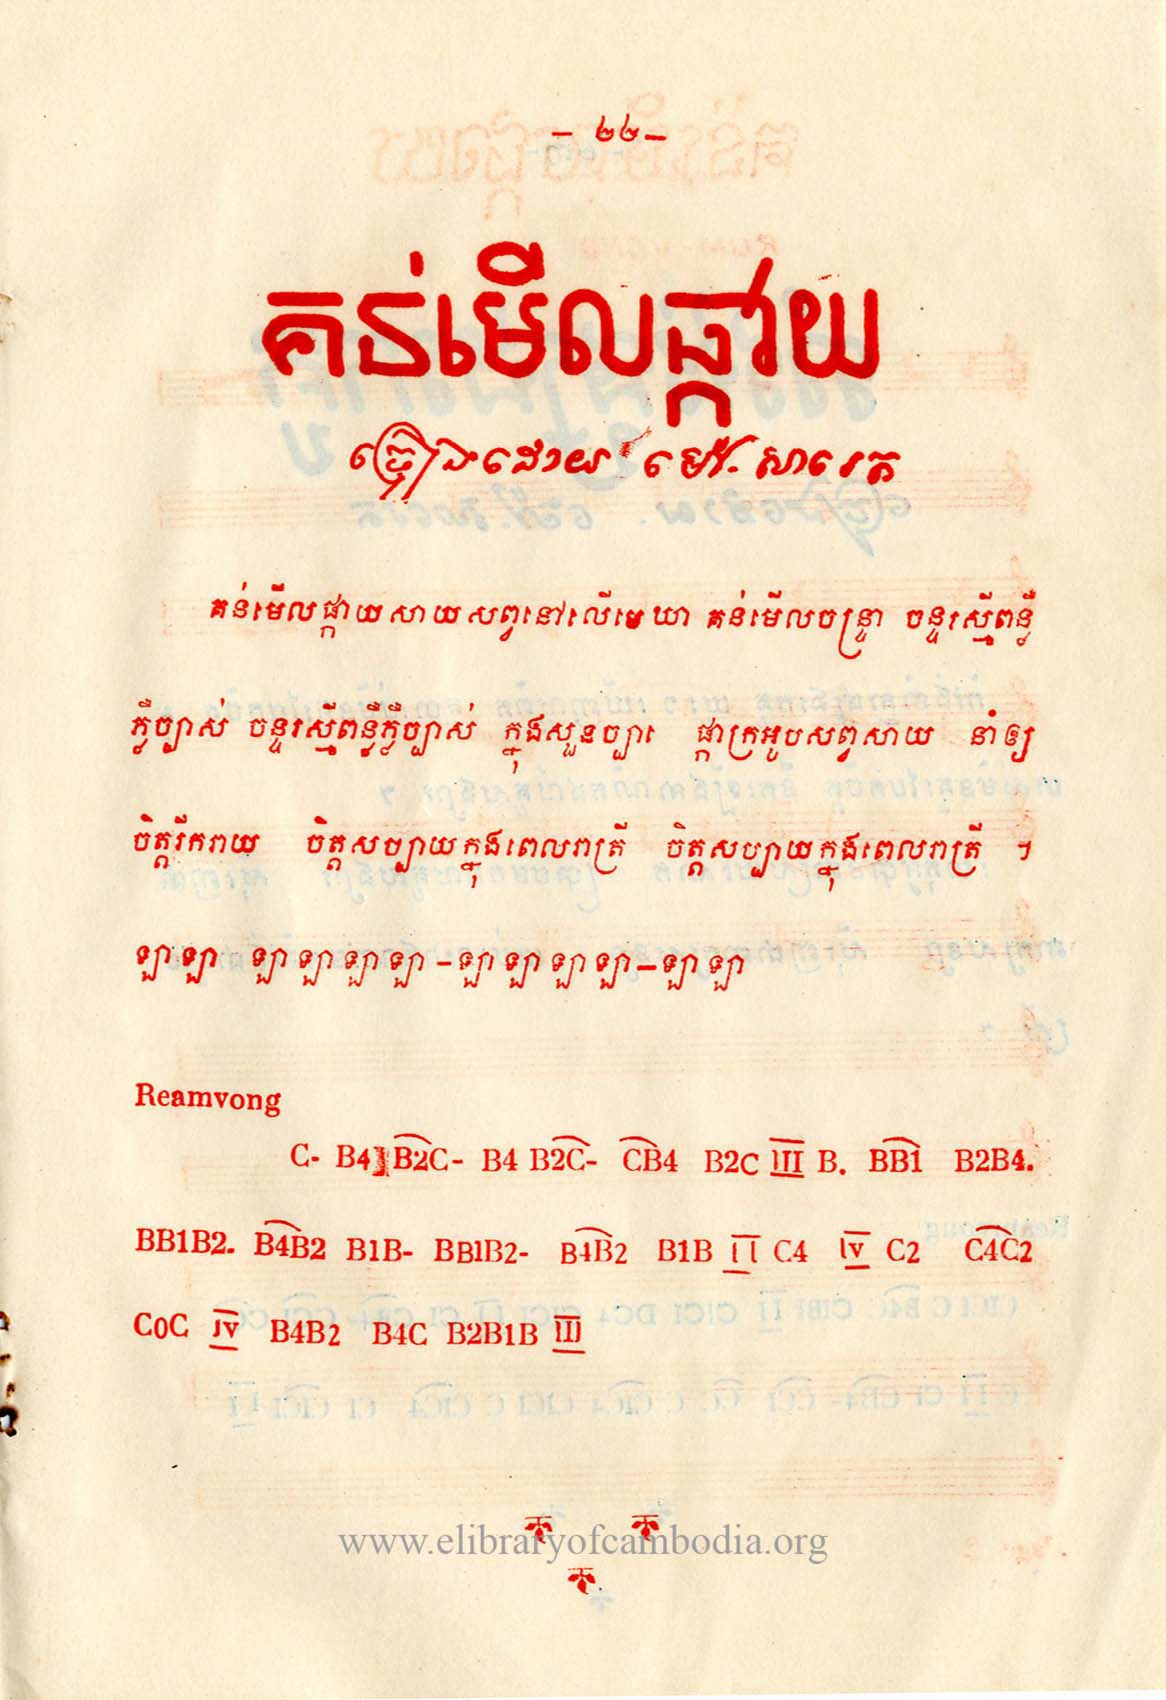 - ២២-
គន់មើលផ្កាយ
ច្រៀងដោយ មៅ. សារេត
គន់មើលផ្កាយ សាយសព្វនៅលើមេឃា គន់មើលចន្ទ្រា ចន្ទរស្មីពន្លឺ
ភ្លឺច្បាស់ ចន្ទរស្មីពន្លឺភ្លឺច្បាស់ ក្នុងសួនច្បារ ផ្កាក្រអូបសព្វសាយ នាំឲ្យ
ចិត្តរីករាយ ចិត្តសប្បាយក្នុងពេលរាត្រី ចិត្តសប្បាយក្នុងពេលរាត្រី ។
ឡាឡា ឡាឡាឡាឡា - ឡាឡាឡាឡា - ឡាឡា
Reamvong
C- B4 B2C- B4 B2C- CB4 B2C III B. BB1 B2B4.
BB1B2. B4B2 B1B- BB1B2- B4B2 B1B II C4 IV C2 C4C2
C0C IV B4B2 B4C B2B1B III
www.elibraryofcambodia.org